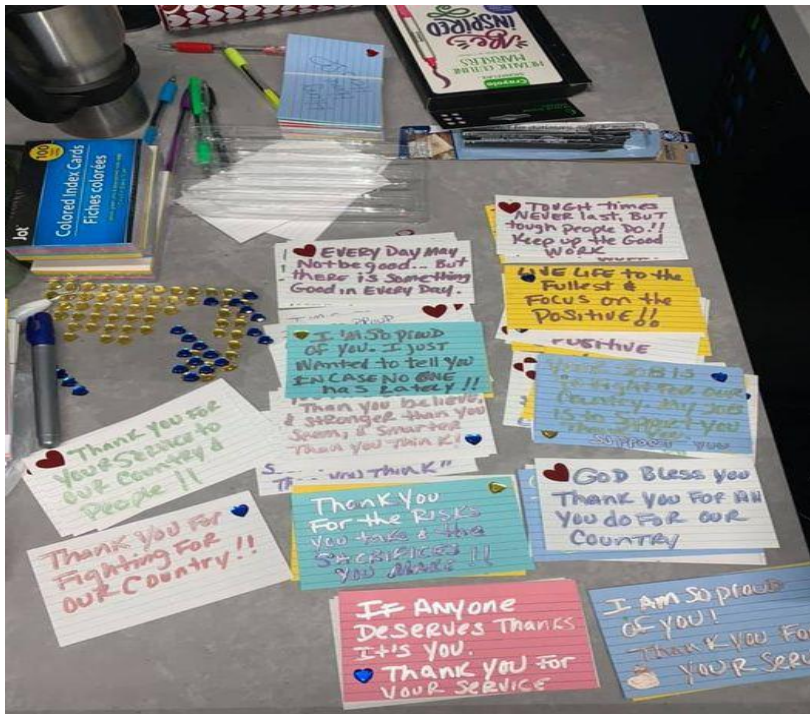 Be
INSPIRED
METALLIC OUTLINE
MARKERS
Crayola
100
Jot
Colored Index Cards
Fiches colorées
TOUGH times
NEVER last, BUT
tough People DO!!
Keep up the Good
WORK
EVERY DAY MAY
Not be good... But
there is Something
Good in EVERY DAY.
LIVE LIFE to the
Fullest &
FOCUS on the
POSITIVE!!
POSITIVE
I AM SO PROUD
OF YOU. I JUST
WANTED to tell YOU
IN CASE NO ONE
HAS LATELY!!
YOUR JOB IS
to Fight FOR OUR
COUNTRY. MY JOB
IS to SUPPORT YOU
SUPPORT YOU
Than you believe,
& stronger than you
Seem, & Smarter
Than you THINK!
YOU THINK"
THANK YOU FOR
YOUR SERVICE to
OUR COUNTRY &
People !!
GOD Bless you
THANK YOU FOR All
YOU do FOR OUR
COUNTRY
THANK YOU
FOR the RISKS
you take & the
SACRIFICES
YOU MAKE!!
Thank you For
Fighting FOR
OUR COUNTRY!!
IF ANYONE
DESERVES THANKS
It's YOU.
THANK YOU FOR
YOUR SERVICE
I AM SO PROUD
OF YOU!
THANK YOU FOR
YOUR SERV